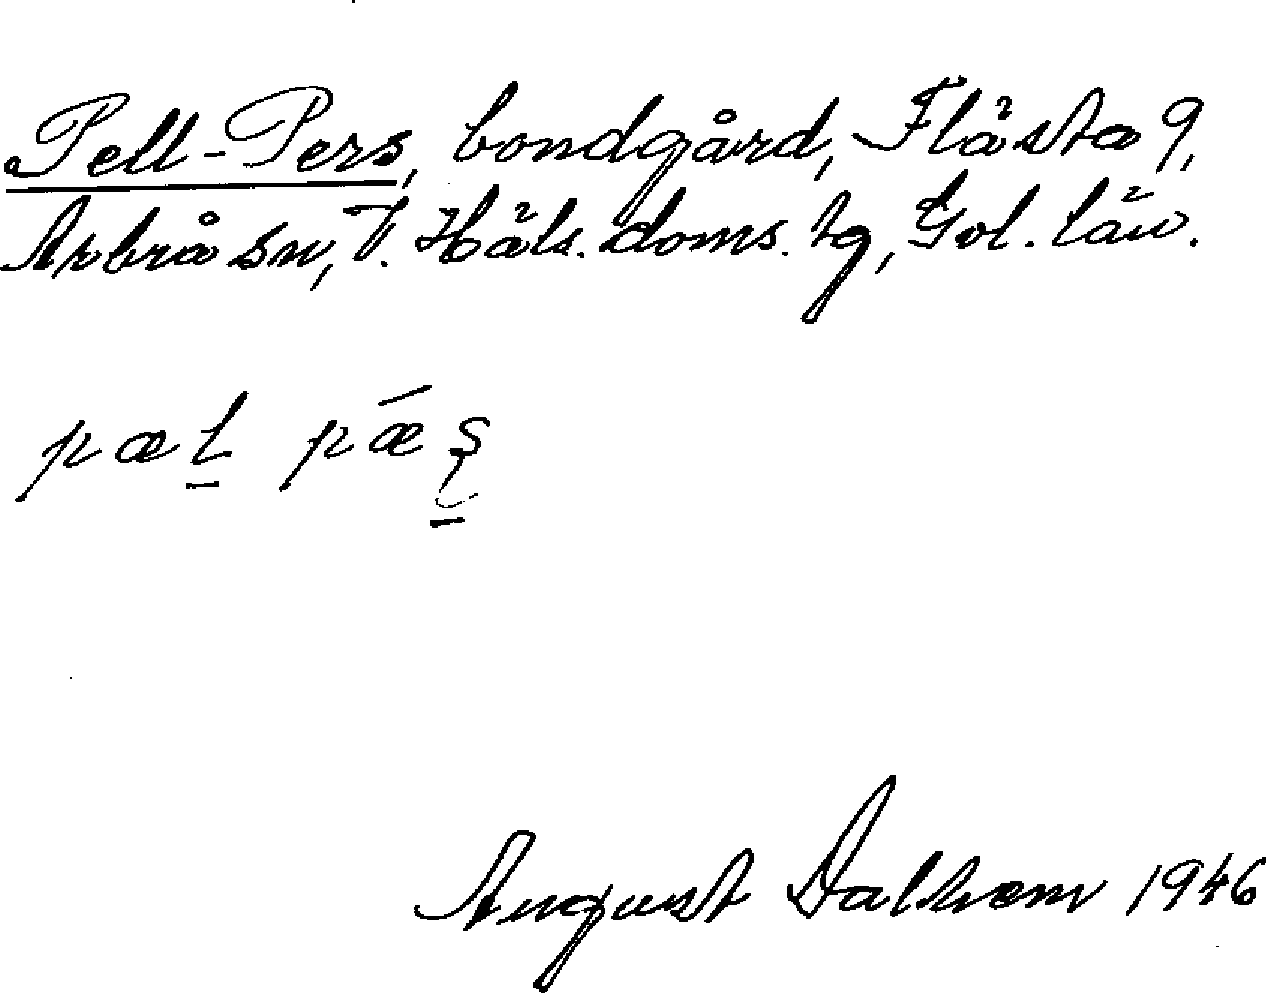 Pell-Pers, bondgård, Flästa 9,
Arbrå sn, V. Häls. doms. tg, Gvl. län.
pæl pǽʂ
August Dalhem 1946